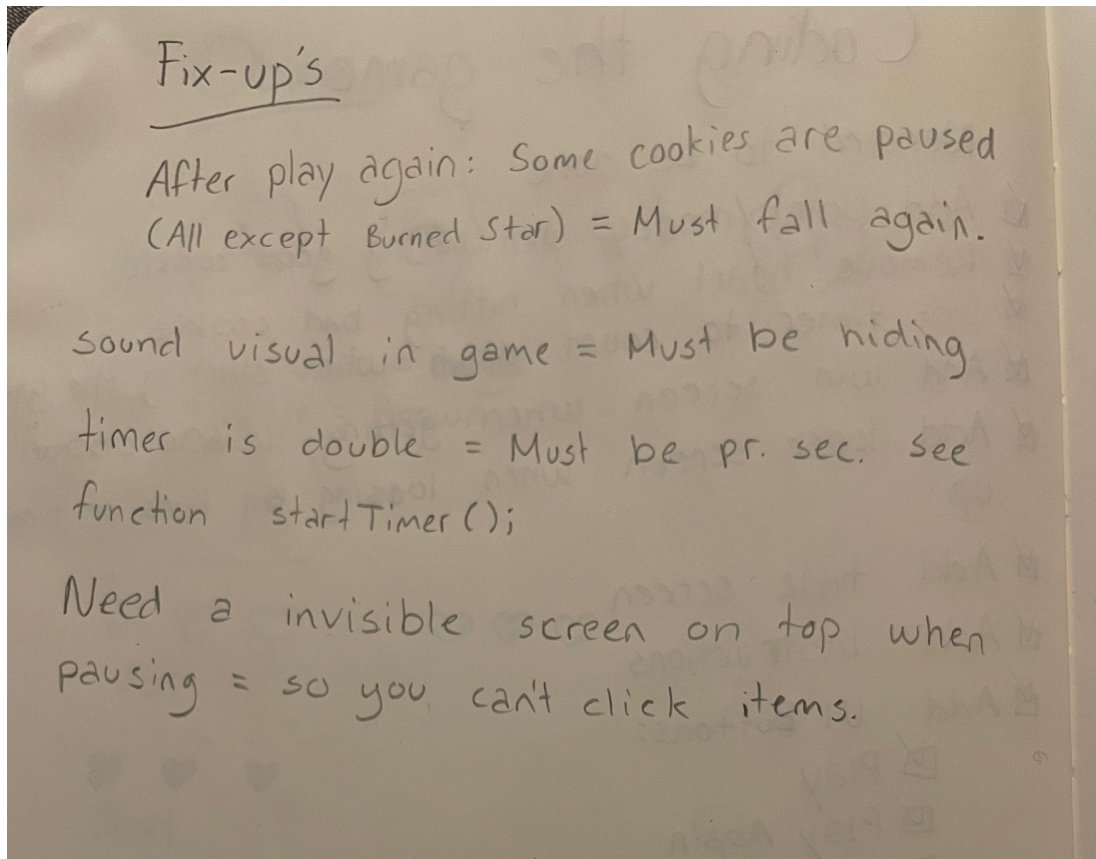 Fix-up's
After play again: Some cookies are paused
(All except Burned Star) = Must fall again.
sound visual in game = Must be hiding
timer is double = Must be pr. sec. see
function startTimer();
Need a invisible screen on top when
pausing = so you can't click items.